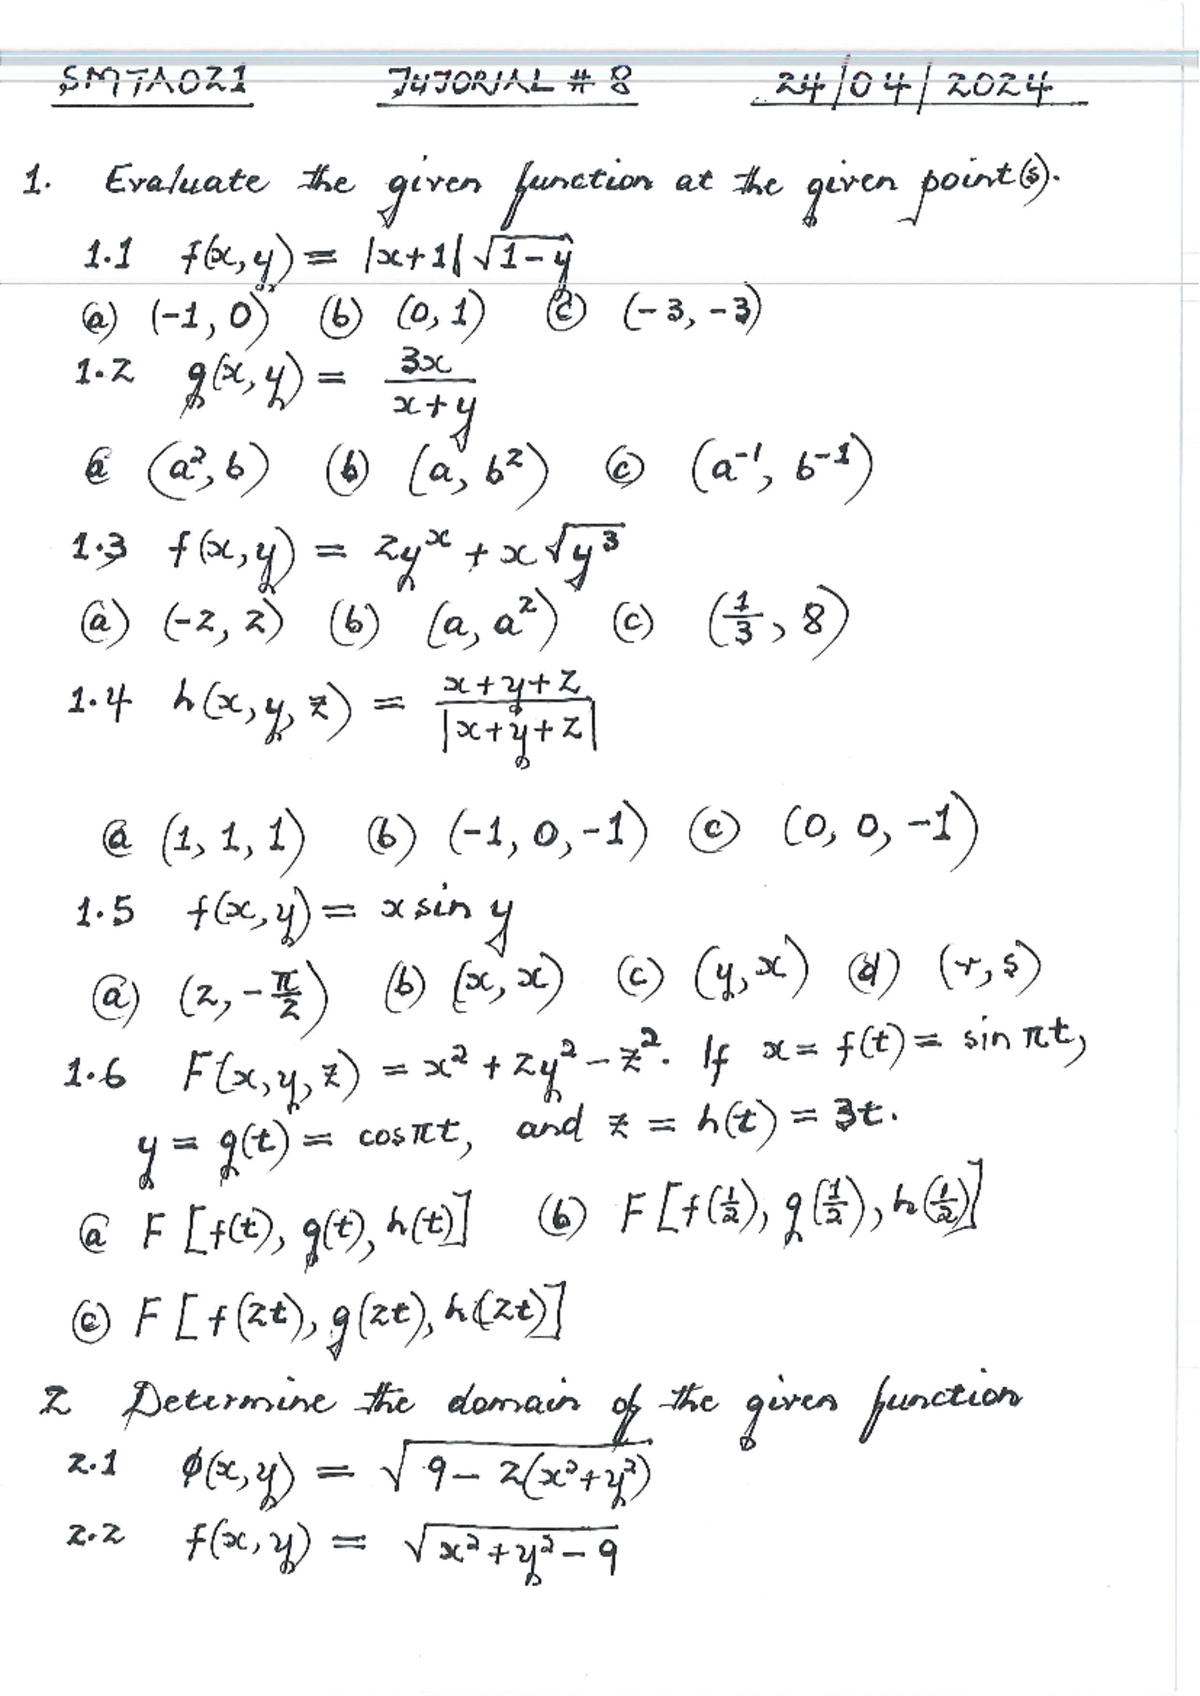 SMTA021 TUTORIAL # 8 24/04/2024
1. Evaluate the given function at the given point(s).
1.1 f(x,y) = |x+1| √(1-y)
(a) (-1, 0) (b) (0, 1) (c) (-3, -3)
1.2 g(x,y) = 3x/(x+y)
(a) (a², b) (b) (a, b²) (c) (a⁻¹, b⁻¹)
1.3 f(x,y) = 2yˣ + x√(y³)
(a) (-2, 2) (b) (a, a²) (c) (1/3, 8)
1.4 h(x,y,z) = (x+y+z)/|x+y+z|
(a) (1, 1, 1) (b) (-1, 0, -1) (c) (0, 0, -1)
1.5 f(x,y) = x sin y
(a) (2, -π/2) (b) (x, x) (c) (y, x) (d) (r, s)
1.6 F(x,y,z) = x² + 2y² - z². If x = f(t) = sin πt,
y = g(t) = cos πt, and z = h(t) = 3t.
(a) F[f(t), g(t), h(t)] (b) F[f(1/2), g(1/2), h(1/2)]
(c) F[f(2t), g(2t), h(2t)]
2 Determine the domain of the given function
2.1 ϕ(x,y) = √(9 - 2(x²+y²))
2.2 f(x,y) = √(x²+y²-9)